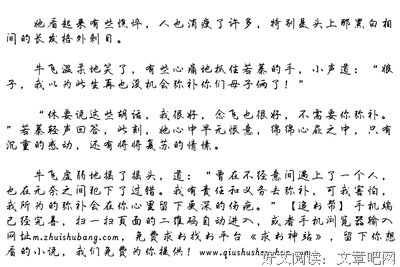 她看起来有些憔悴，人也消瘦了许多，特别是头上那黑白相
间的长发格外刺目。
牛飞温柔地笑了，有些心痛地抓住若慕的手，小声道：“娘
子，我以为此生再也没机会弥补你们母子俩了！”
“休要说这些胡话，我很好，念飞也很好，不需要你弥补。
”若慕轻声回答，此刻，她心中早无恨意，绵绵心底之中，只有
沉重的感动，还有得得复苏的情愫。
牛飞虚弱地摇了摇头，道：“我曾在不经意间遇上了一个人，
也在无奈之间犯下了过错。我有责任和义务去弥补，可我害怕，
我所为的弥补会在你心里留下更深的伤疤。”【追书帮】手机端
已经完善，扫一扫页面的二维码自动进入，或者手机浏览器输入
网址m.zhuishubang.com，免费求书找书平台《求书神站》，留下你想
看的小说，我们免费为你提供！www.qiushushenzhan.com
好文阅读：文章吧网